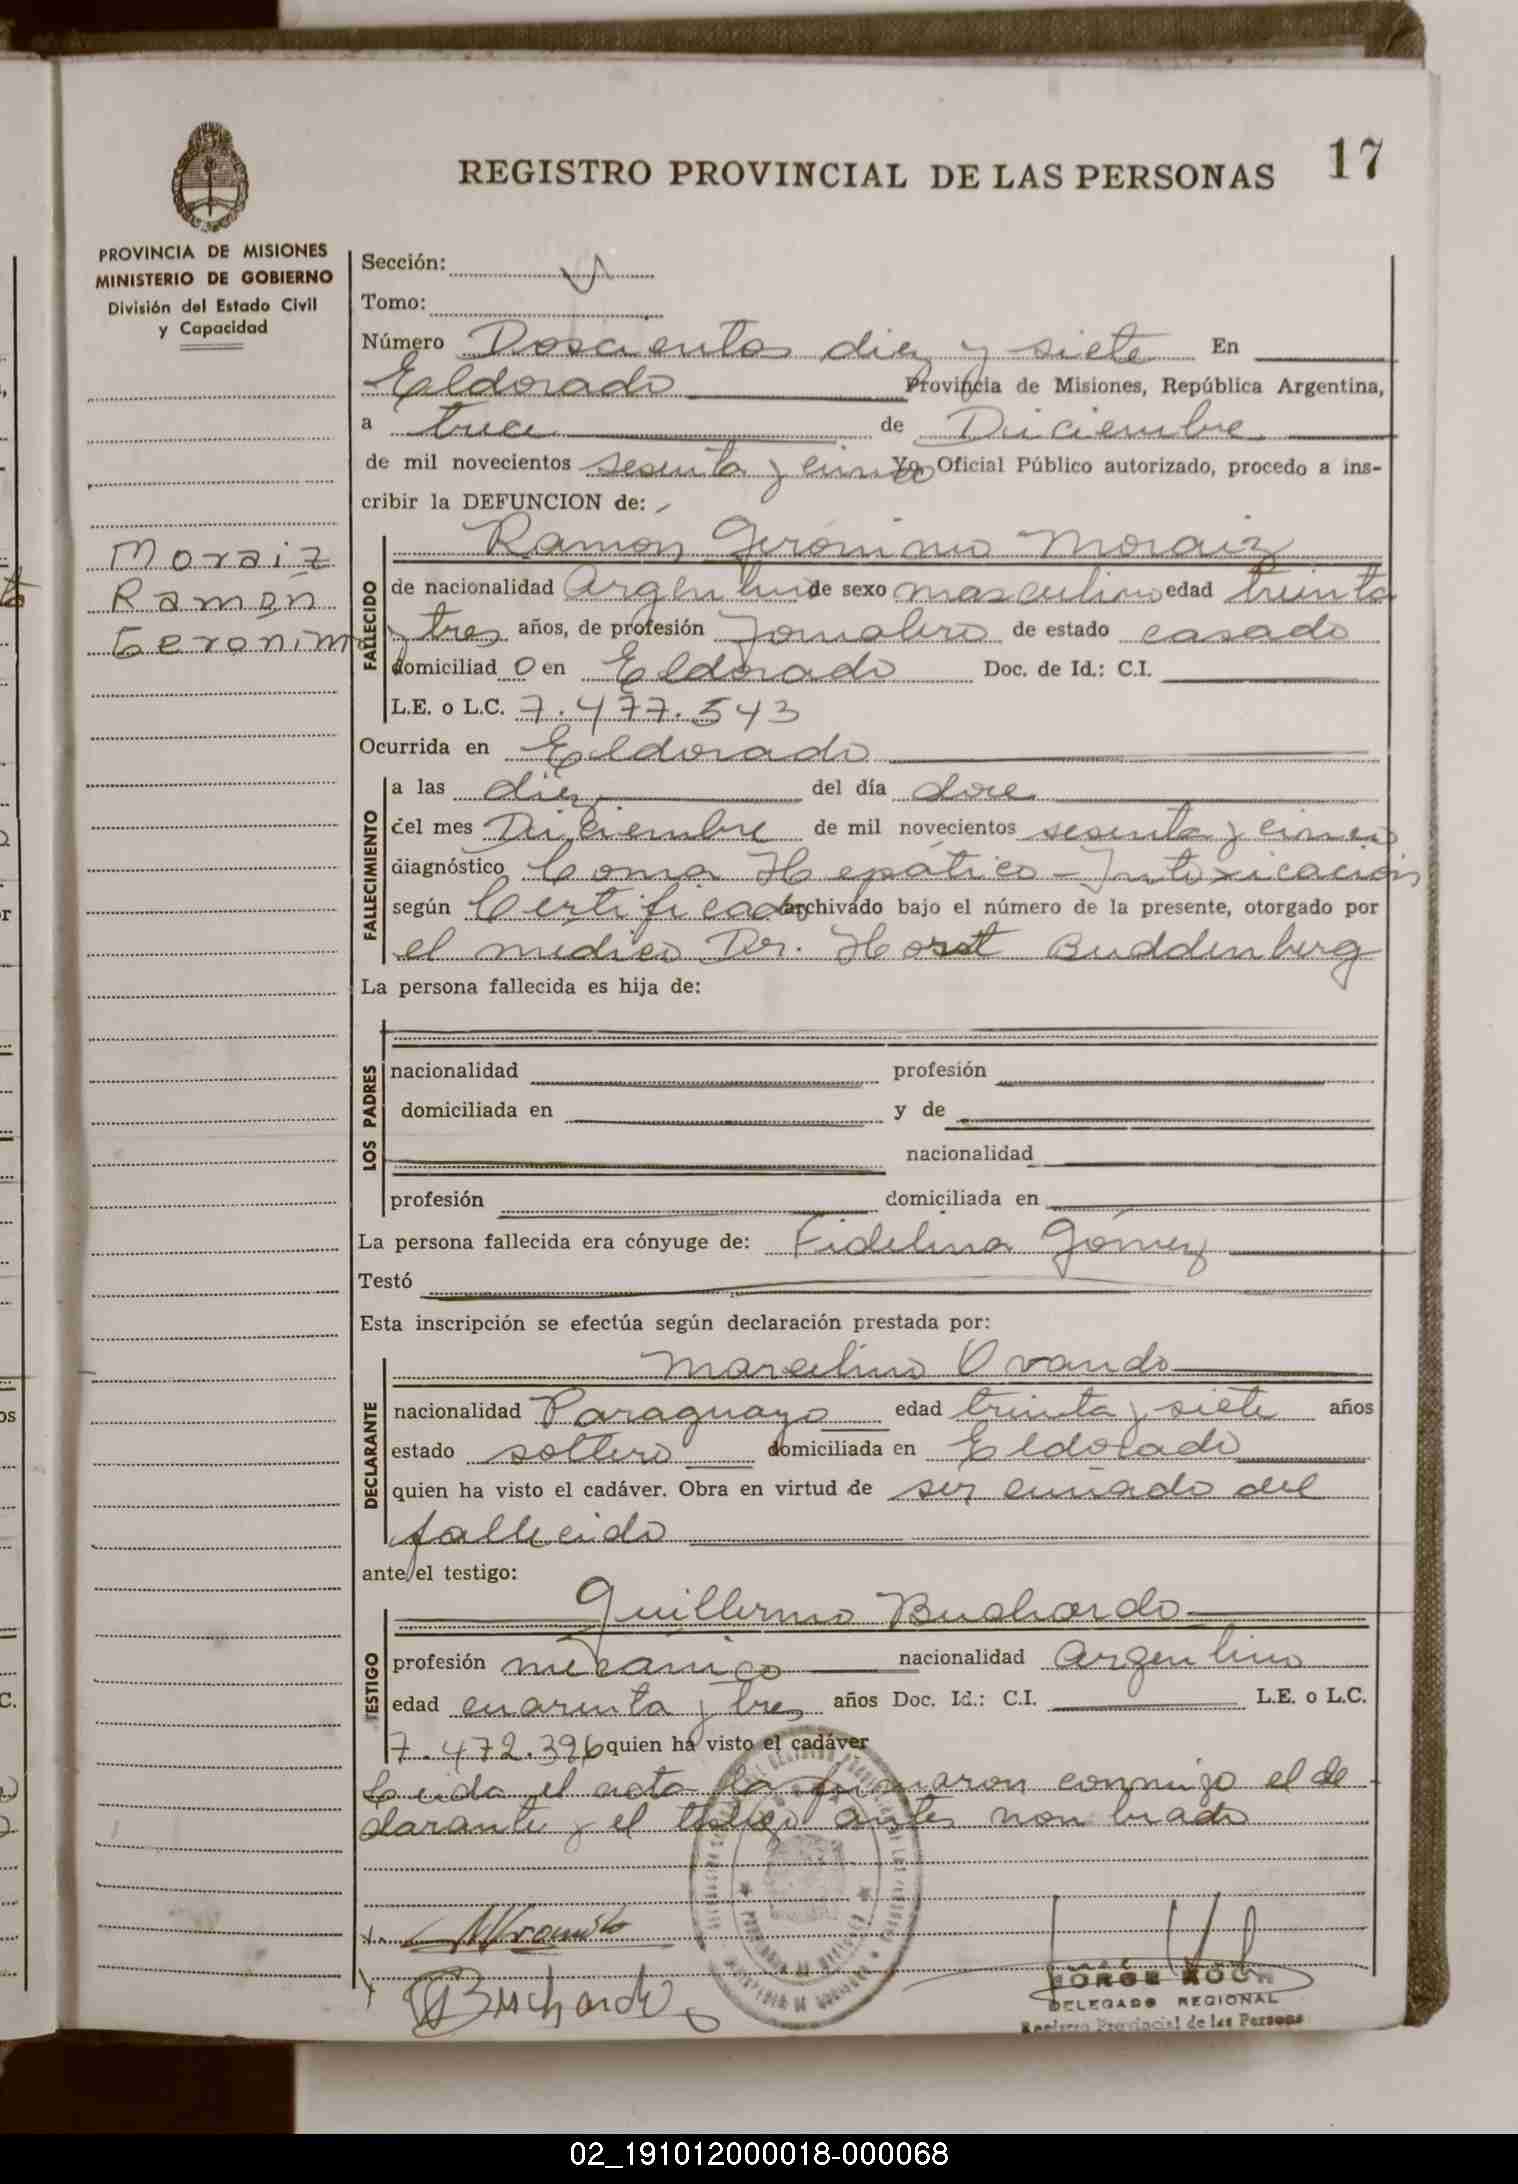 REGISTRO PROVINCIAL DE LAS PERSONAS 17
PROVINCIA DE MISIONES
MINISTERIO DE GOBIERNO
División del Estado Civil
y Capacidad
Moraiz
Ramón
Geronimo
Sección:
Tomo:
Número Doscientos diez y siete En
Eldorado Provincia de Misiones, República Argentina,
a trece de Diciembre
de mil novecientos sesenta y cinco Yo Oficial Público autorizado, procedo a ins-
cribir la DEFUNCION de:
FALLECIDO
Ramon Gerónimo Moraiz
de nacionalidad Argentina de sexo masculino edad treinta
y tres años, de profesión Jornalero de estado casado
domiciliad o en Eldorado Doc. de Id.: C.I.
L.E. o L.C. 7.477.543
Ocurrida en Eldorado
FALLECIMIENTO
a las diez del día doce
del mes Diciembre de mil novecientos sesenta y cinco
diagnóstico Coma Hepático - Intoxicación
según Certificado archivado bajo el número de la presente, otorgado por
el medico Dr. Horst Buddenberg
La persona fallecida es hija de:
LOS PADRES
nacionalidad profesión
domiciliada en y de
nacionalidad
profesión domiciliada en
La persona fallecida era cónyuge de: Fidelina Gómez
Testó
Esta inscripción se efectúa según declaración prestada por:
DECLARANTE
Marcelino Ovando
nacionalidad Paraguayo edad treinta y siete años
estado soltero domiciliada en Eldorado
quien ha visto el cadáver. Obra en virtud de ser cuñado del
fallecido
ante el testigo:
TESTIGO
Guillermo Bushardo
profesión mecánico nacionalidad Argentino
edad cuarenta y tres años Doc. Id.: C.I. L.E. o L.C.
7.472.396 quien ha visto el cadáver
Leida el acta la firmaron conmigo el de
clarante y el testigo antes nombrado
Buschardo
JORGE KOCH
DELEGADO REGIONAL
Registro Provincial de las Personas
02_191012000018-000068